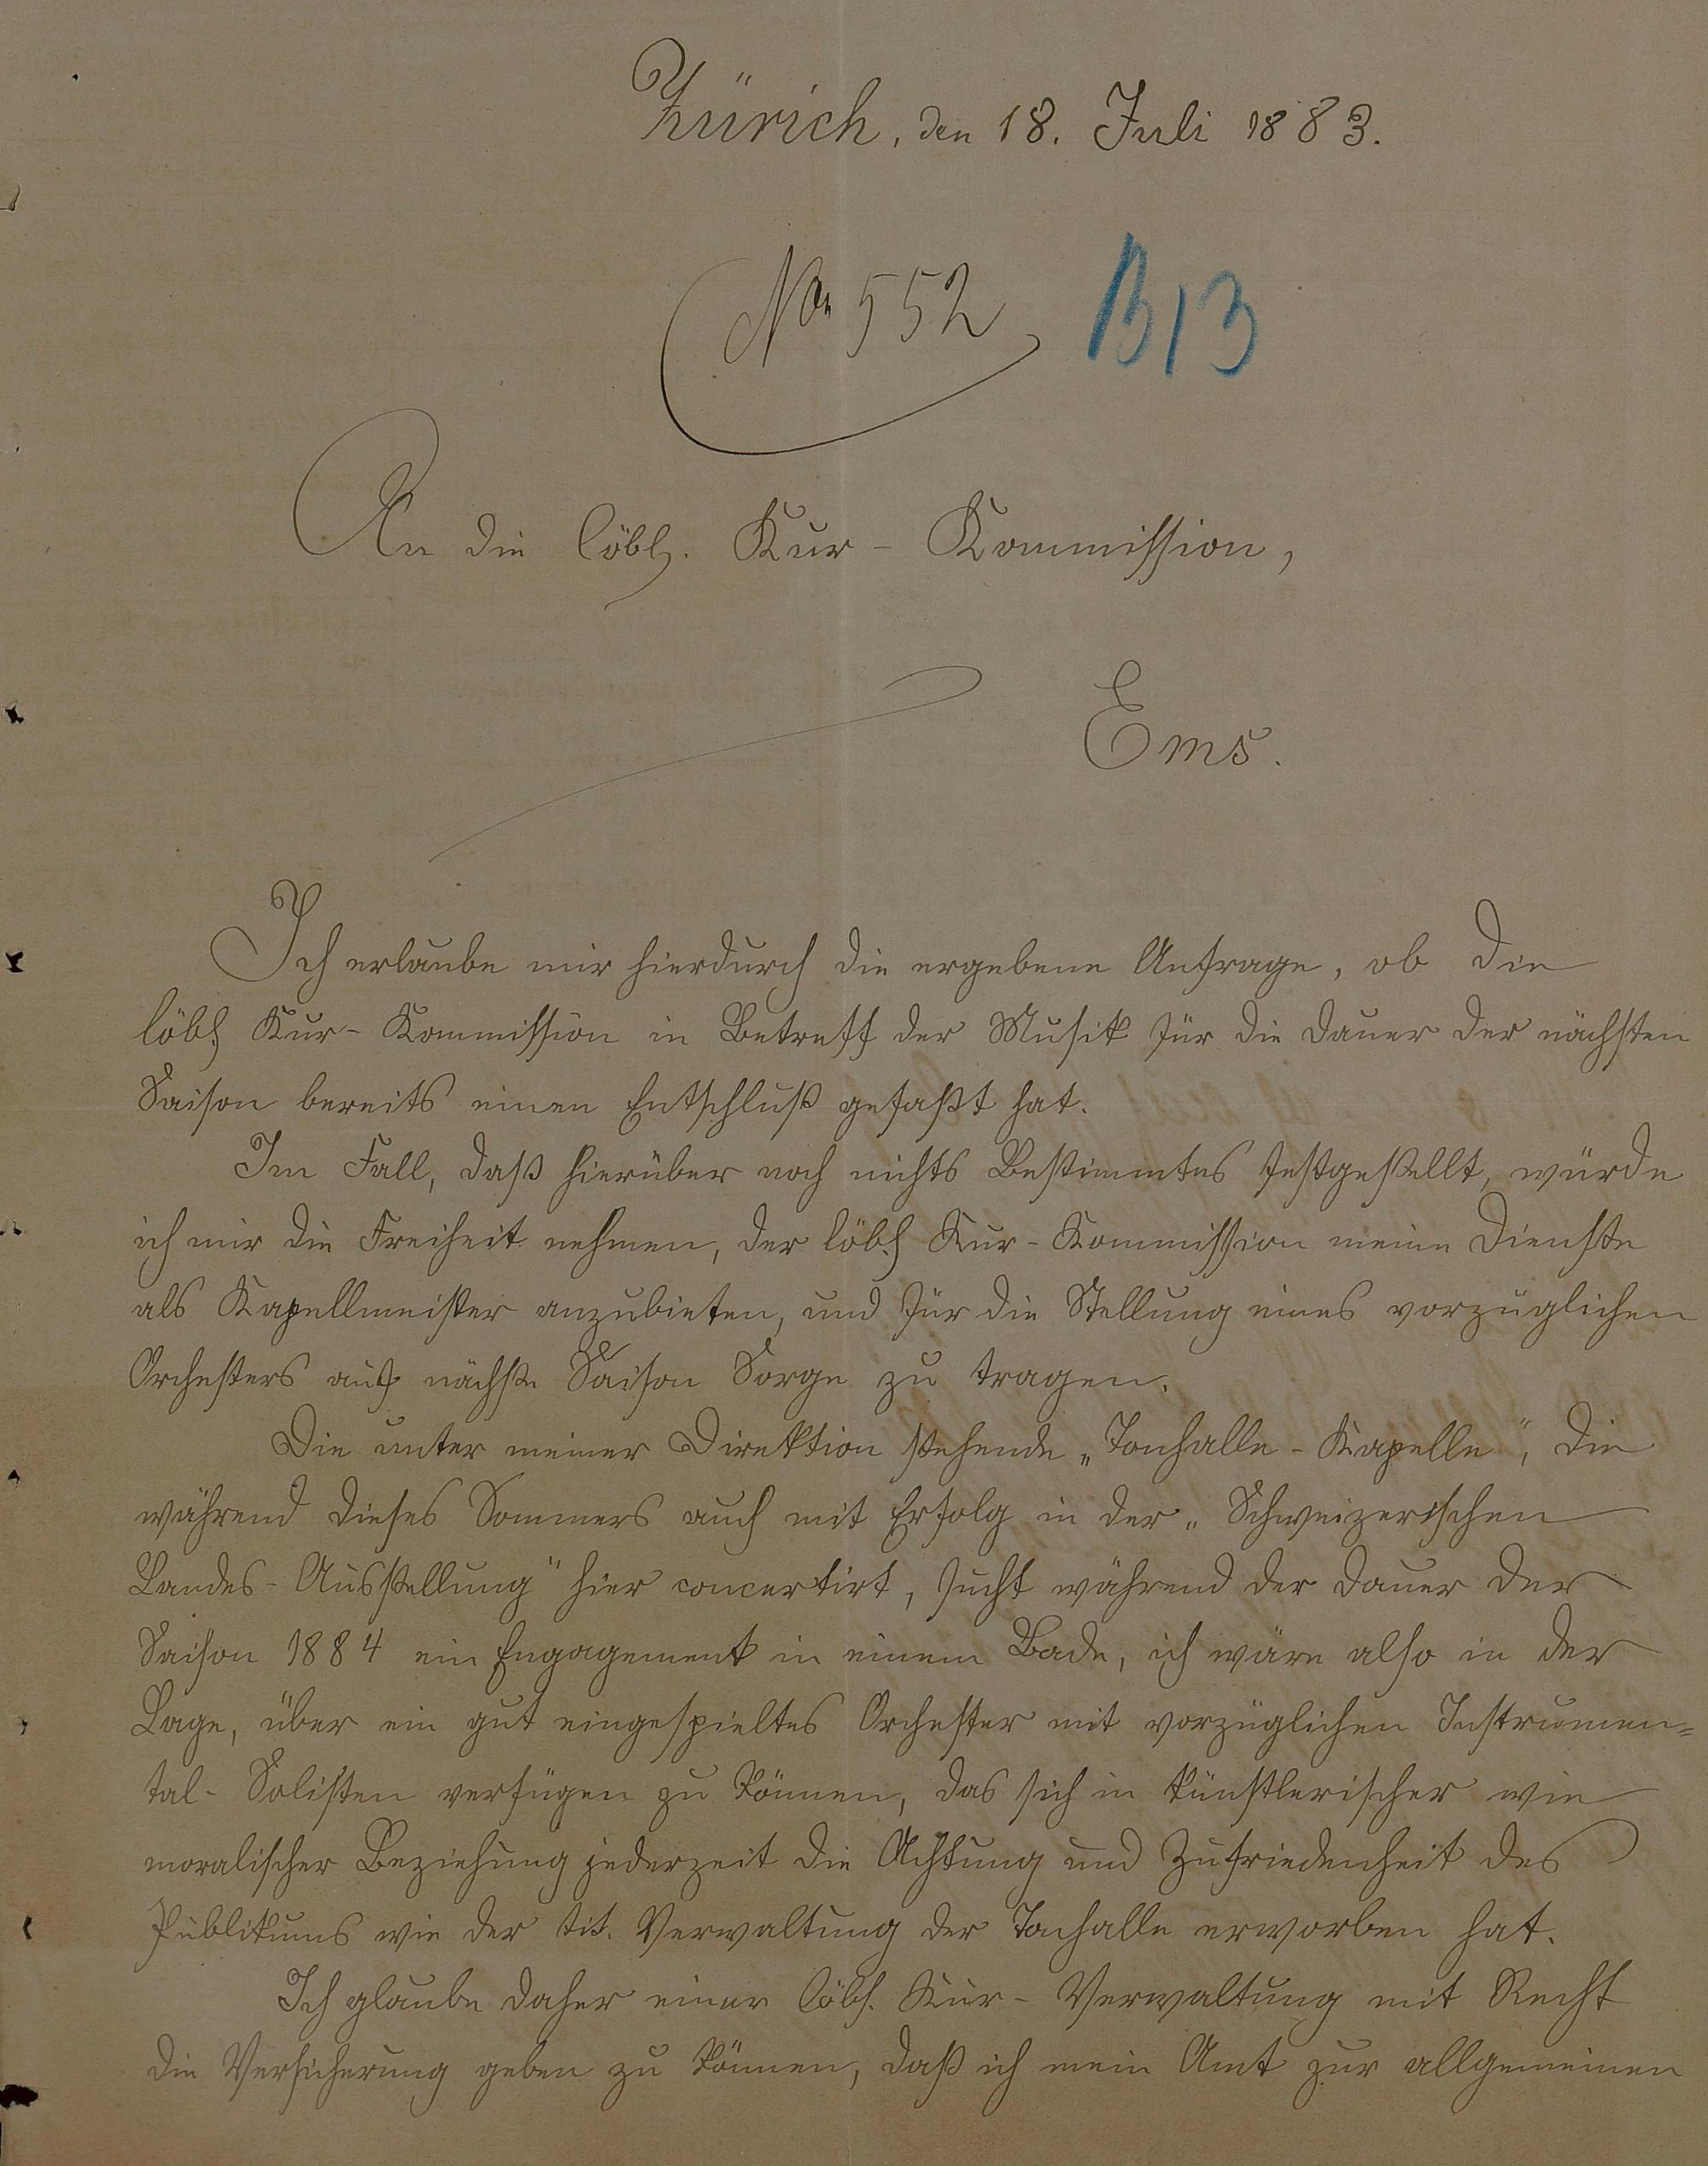 Zürich, den 18. Juli 1883.
No 552 B13
An die löbl. Kur-Kommission,
Ems.
Ich erlaube mir hierdurch die ergebene Anfrage, ob die
löbl. Kur-Kommission in Betreff der Musik für die Dauer der nächsten
Saison bereits einen Entschluß gefaßt hat.
Im Fall, daß hierüber noch nichts Bestimmtes festgestellt, würde
ich mir die Freiheit nehmen, der löbl. Kur-Kommission meine Dienste
als Kapellmeister anzubieten, und für die Stellung eines vorzüglichen
Orchesters auf nächste Saison Sorge zu tragen.
Die unter meiner Direktion stehende „Tonhalle-Kapelle", die
während dieses Sommers auch mit Erfolg in der „Schweizerischen
Landes-Ausstellung" hier concertirt, sucht während der Dauer der
Saison 1884 ein Engagement in einem Bade, ich wäre also in der
Lage, über ein gut eingespieltes Orchester mit vorzüglichen Instrumen=
tal-Solisten verfügen zu können, das sich in künstlerischer wie
moralischer Beziehung jederzeit die Achtung und Zufriedenheit des
Publikums wie der tit. Verwaltung der Tonhalle erworben hat.
Ich glaube daher einer löbl. Kur-Verwaltung mit Recht
die Versicherung geben zu können, daß ich mein Amt zur allgemeinen